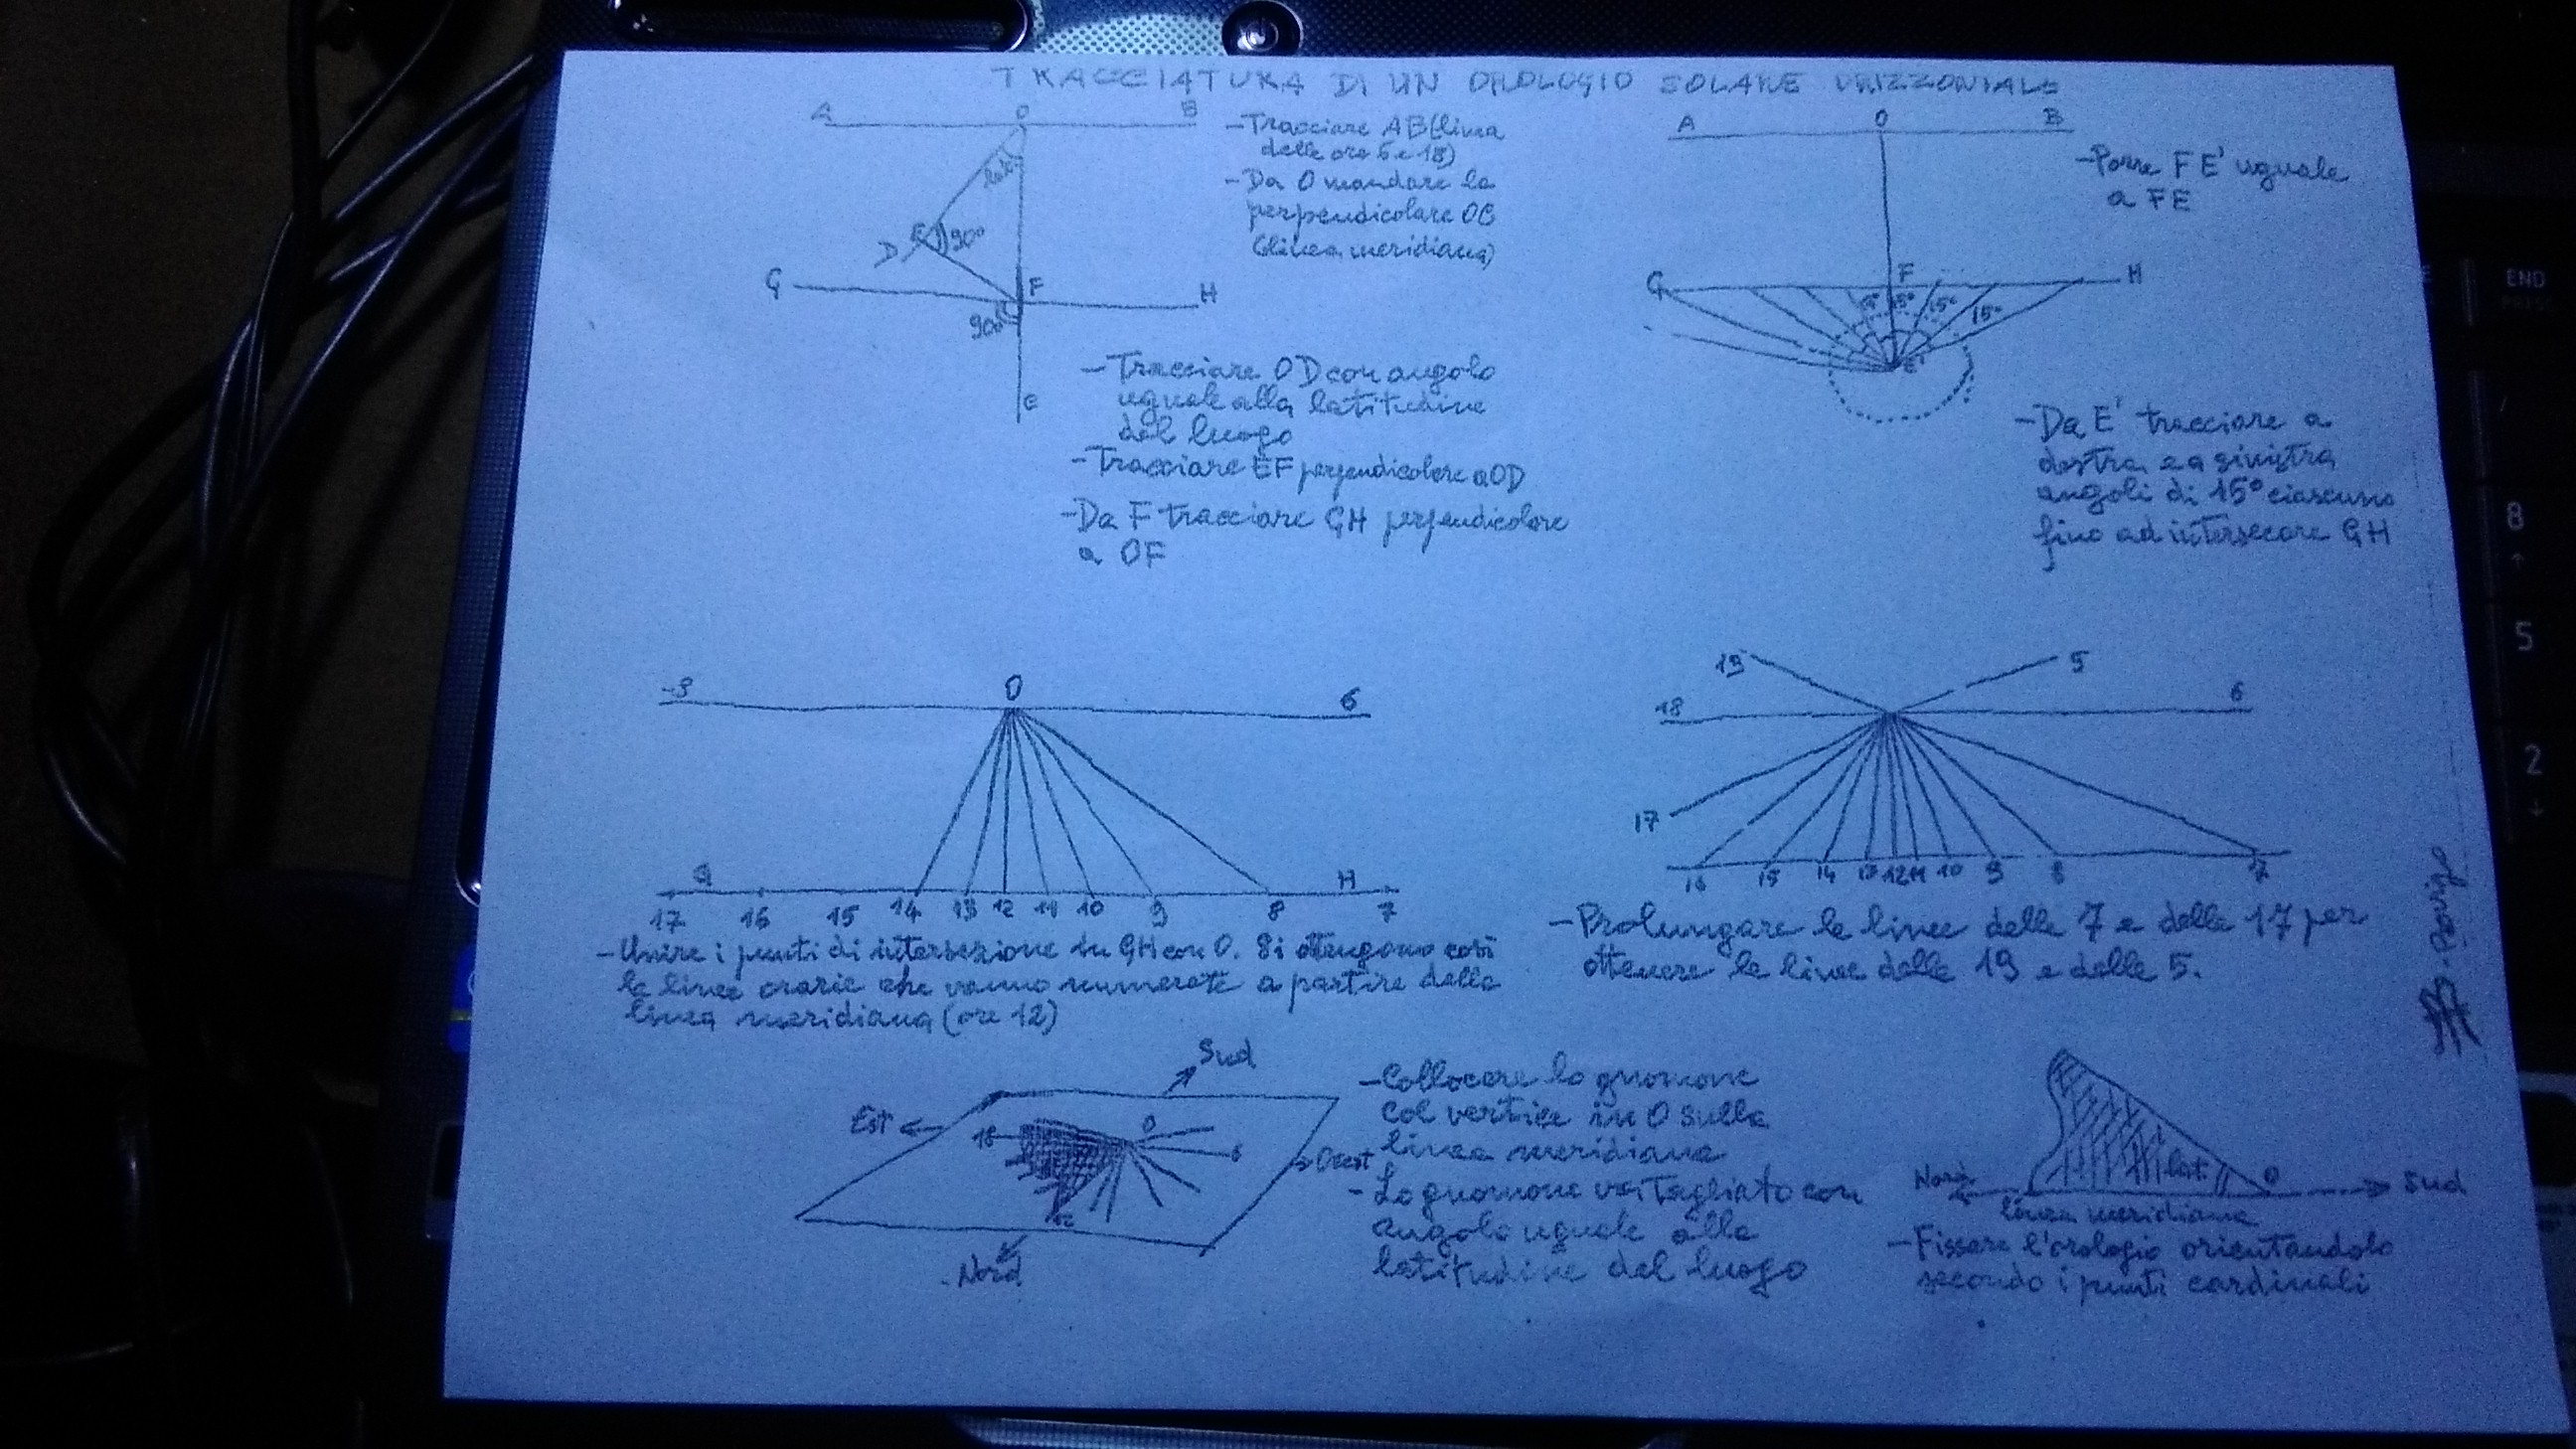 TRACCIATURA DI UN OROLOGIO SOLARE ORIZZONTALE
A O B
lat.
D E 90°
G F H
90°
C
-Tracciare AB (linea
delle ore 6 e 18)
-Da O mandare la
perpendicolare OC
(linea meridiana)
-Tracciare OD con angolo
uguale alla latitudine
del luogo
-Tracciare EF perpendicolare a OD
-Da F tracciare GH perpendicolare
a OF
A O B
-Porre F E' uguale
a FE
G F H
15° 15° 15°
E'
-Da E' tracciare a
destra e a sinistra
angoli di 15° ciascuno
fino ad intersecare GH
O 6
G H
17 16 15 14 13 12 11 10 9 8 7
-Unire i punti di intersezione su GH con O. Si ottengono così
le linee orarie che vanno numerate a partire dalla
linea meridiana (ore 12)
19 5
18 6
17
16 15 14 13 12 11 10 9 8 7
-Prolungare le linee delle 7 e delle 17 per
ottenere le linee delle 19 e delle 5.
Sud
Est
18 O
6
Ovest
12
Nord
-Collocare lo gnomone
col vertice in O sulla
linea meridiana
-Lo gnomone va tagliato con
angolo uguale alla
latitudine del luogo
lat. O
Nord Sud
linea meridiana
-Fissare l'orologio orientandolo
secondo i punti cardinali